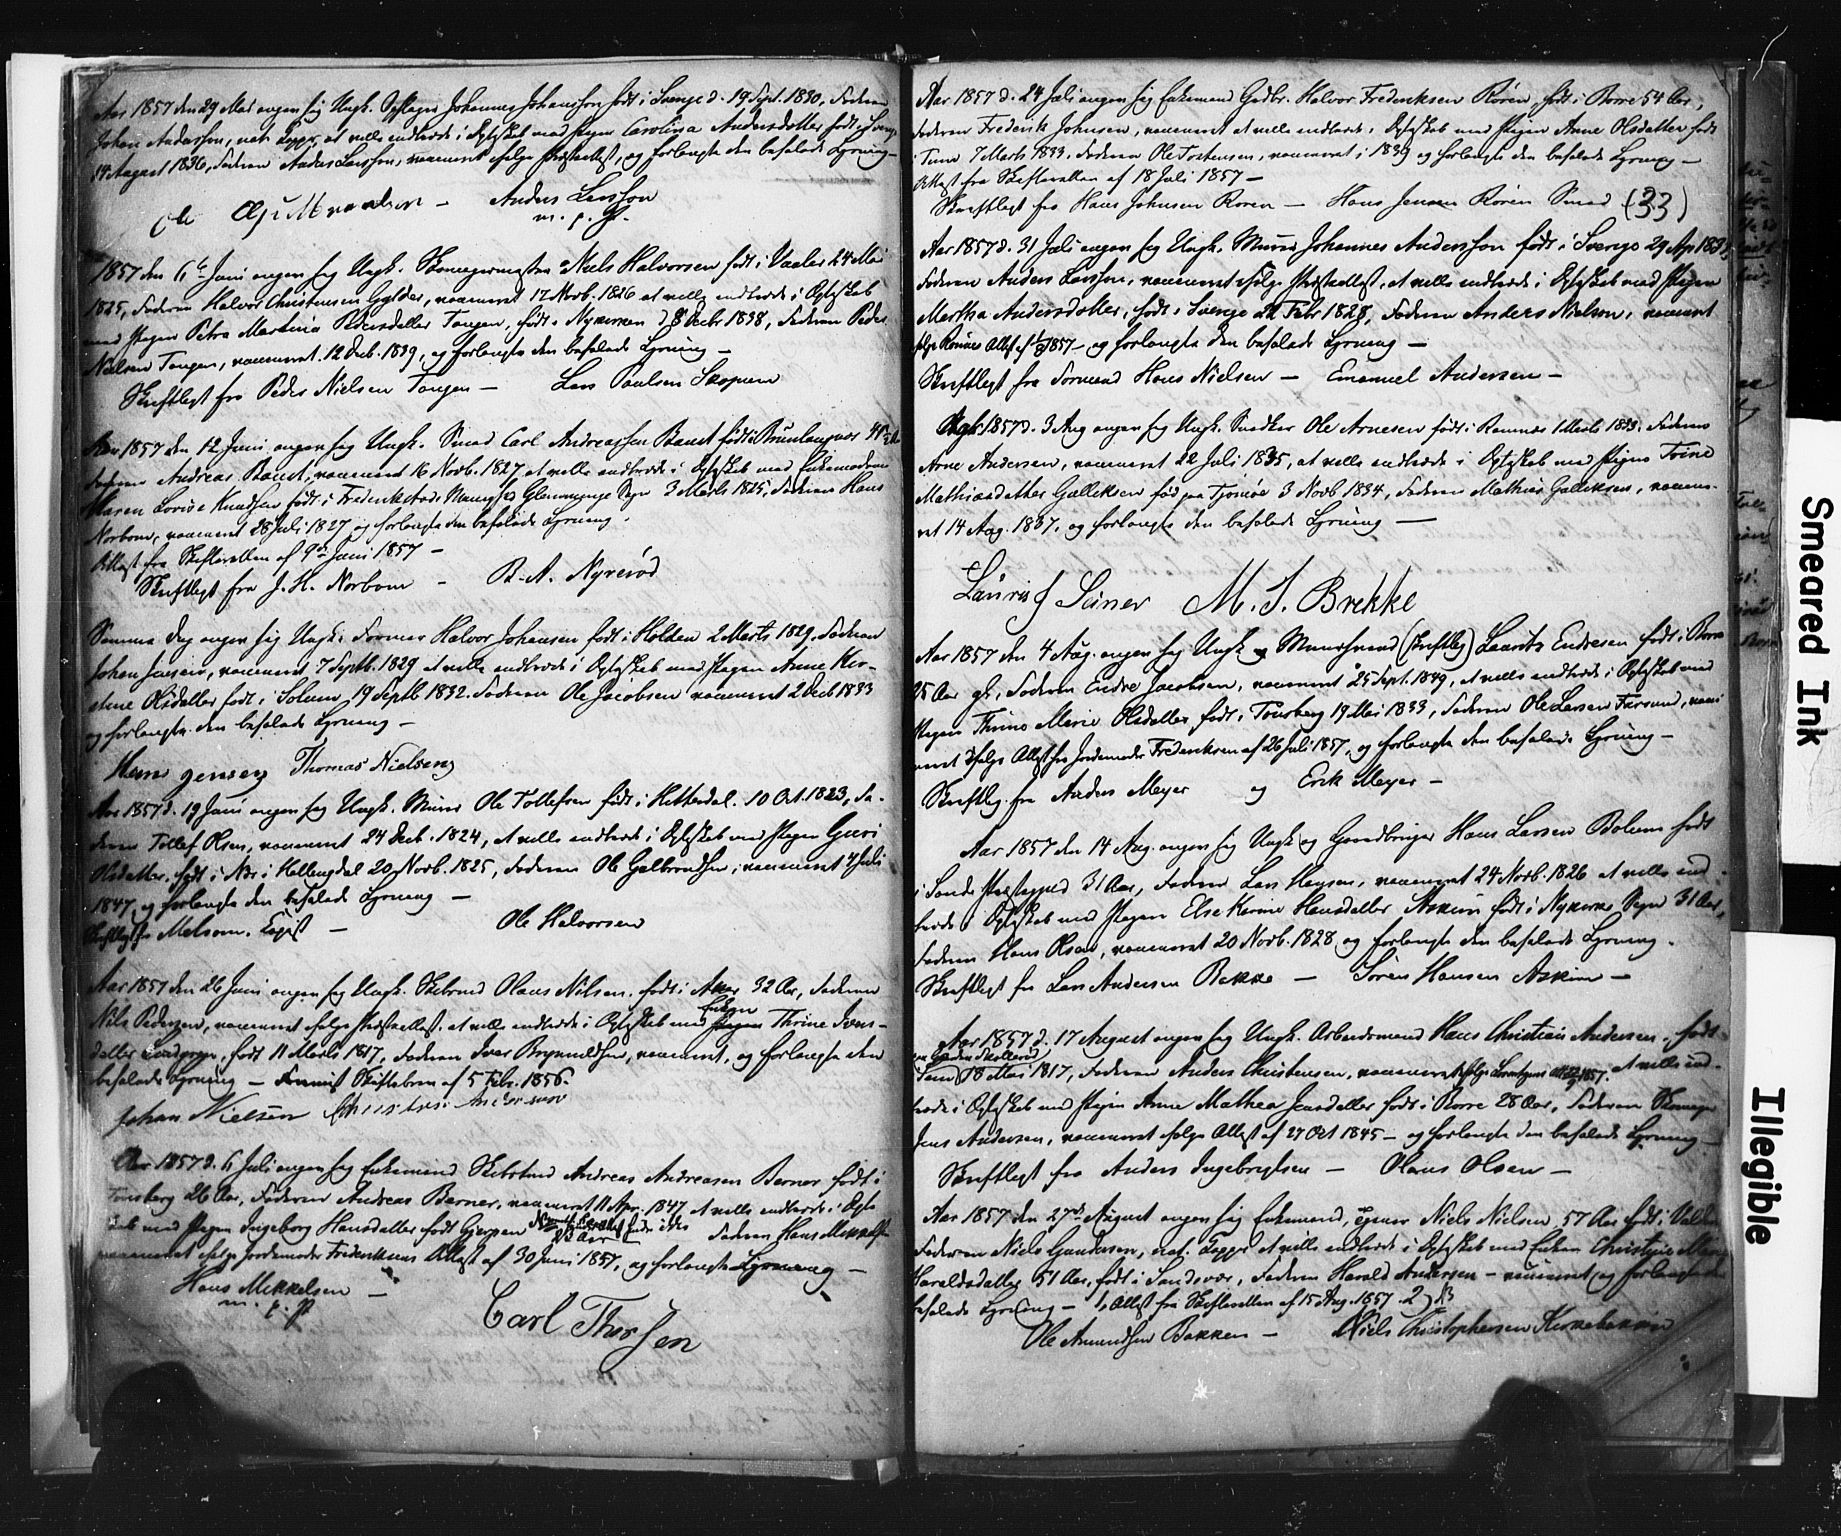 Aar 1857 den 29 Mai angav sig Ungk. Johannes Johansson født i Sverige d. 19 Sept. 1830, Faderen
Johan Andersson, at ville indtræde i Ægteskab med Pigen Carolina Andersdotter født i Sverige
14 August 1836, Faderen Anders Larsson, vaccineret ifølge Præsteattest, og forlangte den befalede Lysning
Ole Anders Larsson
m. p. P.
1857 den 6te Juni angav sig Ungk. Niels Halvorsen født i Vaaler 24 Mai
1825, Faderen Halvor Christensen Gylder, vaccineret 17 Novb. 1826 at ville indtræde i Ægteskab
med Pigen Petra Martinia Pedersdatter Tangen, født i Nykirken d 8 Decbr 1838, Faderen Peder
Nielsen Tangen, vaccineret 12 Decb. 1839, og forlangte den befalede Lysning —
Skriftligt fra Peder Nielsen Tangen — Lars Paulsen Skopum
Aar 1857 den 12 Juni angav sig Ungk. Smed Carl Andreassen Bandt født i Brunlaugnæs
Faderen Andreas Bandt, vaccineret 16 Novb. 1827, at ville indtræde i Ægteskab med Enkemadame
Maren Lovise Knudsen født i Frederikstads Glemminge Sogn 3 Marts 1825, Faderen Hans
Norbom, vaccineret 28 Juli 1827 og forlangte den befalede Lysning.
Attest fra Skifteretten af 9de Juni 1857 —
Skriftligt fra J. H. Norbom — B. A. Nyrerød
Samme Dag angav sig Ungk. Former Halvor Johansen født i Holden 2 Marts 1829, Faderen
Johan Jensen, vaccineret 7 Septb. 1829 at ville indtræde i Ægteskab med Pigen Anne Kir-
stine Olsdatter født i Solum 19 Septb 1832. Faderen Ole Jacobsen vaccineret 2 Decb 1833
og forlangte den befalede Lysning —
Hans Jensen Thomas Nielsen
Aar 1857 d. 19 Juni angav sig Ungk. Murer Ole Tollefsen født i Hitterdal 10 Oct. 1823, Fa-
deren Tollef Olsen, vaccineret 24 Decb. 1824, at ville indtræde i Ægteskab med Pigen Guri
Olsdatter, født i Næs i Hallingdal 20 Novb. 1825, Faderen Ole Galbrandsen, vaccineret 4 Juli
1847, og forlangte den befalede Lysning —
Skriftligt fra Melsom — Ole Halvorsen
Aar 1857 den 26 Juni angav sig Ungk. Olaus Nilsen, født i Aker 32 Aar, Faderen
Nils Pedersen, vaccineret ifølge Præsteattest, at ville indtræde i Ægteskab med Enken Thrine Ivers-
datter, født 11 Marts 1817, Faderen Iver Brynnildsen, vaccineret, og forlangte den
befalede Lysning — Skiftebrev af 5 Febr. 1856.
Johan Nielsen Christen Andersen
Aar 1857 d. 6 Juli angav sig Enkemand Andreas Andreasen Berner født i
Tønsberg 26 Aar, Faderen Andreas Berner, vaccineret 11 Apr. 1847 at ville indtræde i Ægte
skab med Pigen Ingeborg Hansdatter, født Gjerpen Faderen Hans Mekkelsen
vaccineret ifølge Jordemoder Frederiksens Attest af 30 Juni 1857, og forlangte Lysning —
Hans Mekkelsen —
m. p. P.
Carl Thorsen
Aar 1857 d. 24 Juli angav sig Enkemand Gdbr. Halvor Frederiksen Røren, født i Borre 54 Aar,
Faderen Frederik Johnsen, vaccineret at ville indtræde i Ægteskab med Pigen Anne Olsdatter født
i Tune 7 Marts 1833, Faderen Ole Torstensen, vaccineret i 1839 og forlangte den befalede Lysning —
Attest fra Skifteretten af 18 Juli 1857 —
Skriftligt fra Hans Johnsen Røren — Hans Jensen Røren Smed (33)
Aar 1857 d. 31 Juli angav sig Ungk. Murer Johannes Andersson født i Sverige 29 Apr 1833,
Faderen Anders Larsson, vaccineret ifølge Præsteattest, at ville indtræde i Ægteskab med Pigen
Martha Andersdotter, født i Sverige 22 Febr 1828, Faderen Anders Nielson, vaccineret
ifølge Attest 1857 — og forlangte den befalede Lysning —
Skriftligt fra Formand Hans Nielsen — Emanuel Andersen —
Aar 1857 d. 3 Aug angav sig Ungk. Snedker Ole Arnesen født i Ramnæs 1 Marts 1833. Faderen
Arne Andersen, vaccineret 22 Juli 1835, at ville indtræde i Ægteskab med Pigen Trine
Mathiasdatter Galleksen født paa Tjømø 3 Novb 1834, Faderen Mathias Galleksen, vaccine-
ret 14 Aug. 1837. og forlangte den befalede Lysning —
Lauris J Seiner M. J. Brekke
Aar 1857 den 4 Aug. angav sig Ungk og (skriftlig) Laurits Endresen født i Borre
25 Aar gl, Faderen Endre Jacobsen, vaccineret 25 Sept. 1849, at ville indtræde i Ægteskab med
Pigen Thrine Marie Olsdatter født i Tønsberg 19 Mai 1833, Faderen Ole Larsen Farsund, vacci
neret ifølge Attest fra Jordemoder Frederiksen af 26 Juli 1857, og forlangte den befalede Lysning —
Skriftlig fra Anders Meyer og Erik Meyer —
Aar 1857 den 14 Aug. angav sig Ungk og Gaardbruger Hans Larsen Bolum født
i Sande Præstegjeld 31 Aar, Faderen Lars Hansen, vaccineret 24 Novb. 1826 at ville ind
træde i Ægteskab med Pigen Else Karine Hansdatter Askim født i Nykirke Sogn 31 Aar,
Faderen Hans Olsen, vaccineret 20 Novb. 1828 og forlangte den befalede Lysning.
Skriftligt fra Lars Andersen Bakke — Søren Hansen Askim —
Aar 1857 d. 17 August angav sig Ungk. Arbeidsmand Hans Christian Andersen, født
paa Gaarden
18 Mai 1817, Faderen Anders Christensen, vaccineret ifølge 1857. at ville ind-
træde i Ægteskab med Pigen Anne Mathea Jensdatter født i Borre 28 Aar, Faderen Skomager
Jens Andersen, vaccineret ifølge Attest af 27 Oct 1845 — og forlangte den befalede Lysning —
Skriftligt fra Anders Ingebrigtsen — Olaus Olsen —
Aar 1857 den 27de August angav sig Enkemand, Niels Nielsen 57 Aar født i
Faderen Niels Gundersen, nat. Kopper at ville indtræde i Ægteskab med Enken Christine Marie
Haraldsdatter 51 Aar, født i Sandsvær, Faderen Harald Andersen — vaccineret, og forlangte den
befalede Lysning — 1, Attest fra Skifteretten af 15 Aug. 1857. 2)
Ole Amundsen Bakken — Niels Christophersen Kirkebakken
Smeared Ink
Illegible